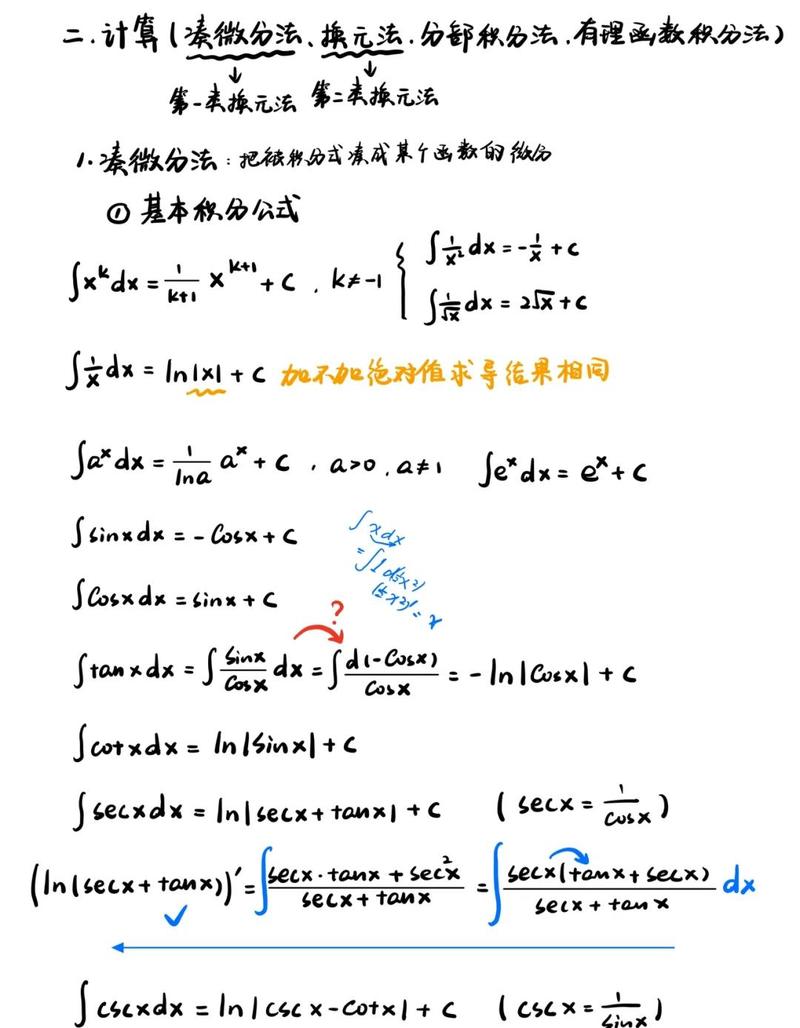 二.计算(凑微分法、换元法.分部积分法.有理函数积分法)
↓ ↓
第一类换元法 第二类换元法
1.凑微分法:把被积分式凑成某个函数的微分
① 基本积分公式
∫x^k dx = 1/(k+1) x^(k+1) + C , k≠-1 { ∫1/x² dx = -1/x + C
∫1/√x dx = 2√x + C
∫1/x dx = ln|x| + C 加不加绝对值求导结果相同
∫a^x dx = 1/lna a^x + C , a>0 , a≠1 ∫e^x dx = e^x + C
∫sinxdx = -Cosx + C
∫xdx
=∫1d(½x²)
(½x²)' = x
∫Cosxdx = sinx + C
?
∫tanxdx = ∫sinx/Cosx dx = ∫d(-Cosx)/Cosx = -ln|Cosx| + C
∫cotxdx = ln|sinx| + C
∫secxdx = ln|secx+tanx| + C (secx = 1/cosx)
(ln(secx+tanx))' = ∫(secx·tanx+sec²x)/(secx+tanx) = ∫secx(tanx+secx)/(secx+tanx) dx
✓
←
∫cscxdx = ln|cscx-cotx| + C (cscx = 1/sinx)